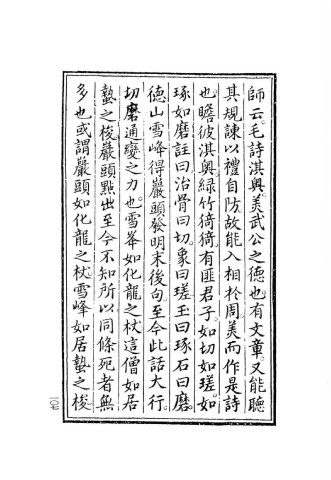 師云毛詩淇奧美武公之德也有文章又能聽
其規諫以禮自防故能入相於周美而作是詩
也瞻彼淇奧綠竹猗猗有匪君子如切如瑳如
琢如磨註曰治骨曰切象曰瑳玉曰琢石曰磨
德山雪峰得巖頭發明末後句至今此話大行
切磨通變之力也雪峯如化龍之杖這僧如居
蟄之梭巖頭點出至今不知所以同條死者無
多也或謂巖頭如化龍之杖雪峰如居蟄之梭
一〇七